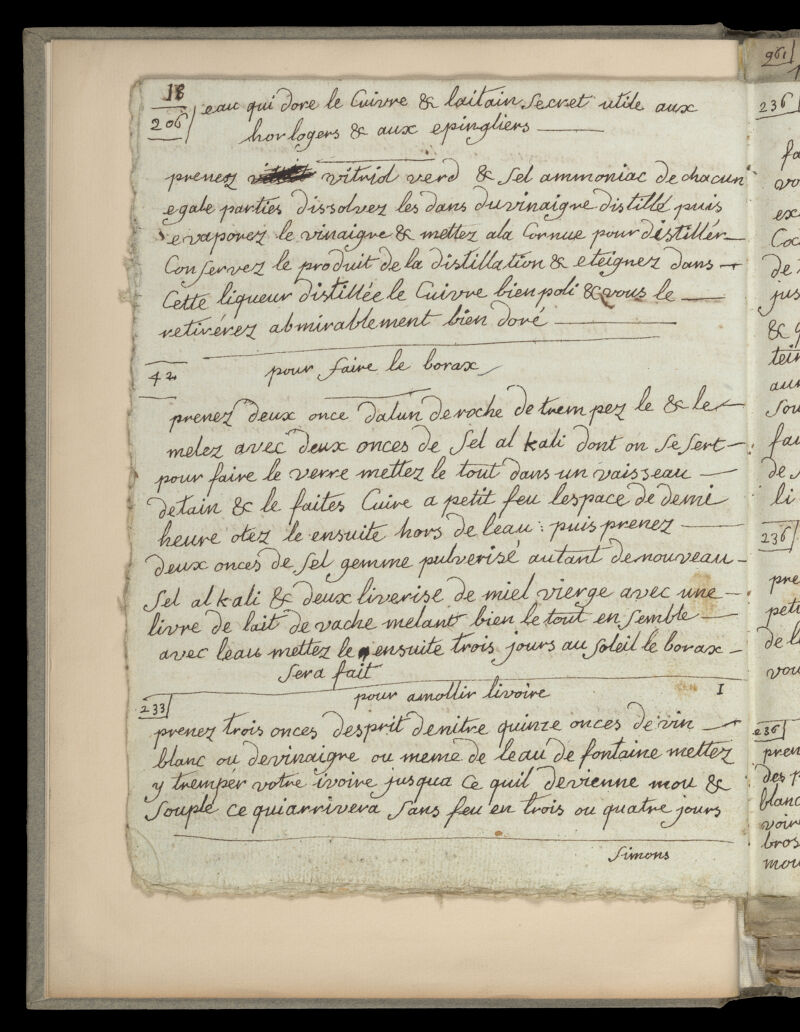 18
206 eau qui dore le Cuivre & laitain Secret utile aux
horlogers & aux epingliers
prenez vitriol verd & Sel ammoniac de chacun
egale parties dissolvez les dans du vinaigre distillé puis
evaporez le vinaigre & mettez ala Cornue pour distillér
Conservez le produit de la distillation & eteignez dans
Cette liqueur distillée le Cuivre bien poli & vous le
retirérez abmirablement bien doré
42 pour faire le borax
prenez deux once dalun de roche detrempez le & le
melez avec deux onces de Sel al kali dont on se sert
pour faire le verre mettez le tout dans un vaisseau
detain & le faites Cuire a petit feu lespace de demi
heure otez le ensuite hors de leau : puis prenez
deux onces de Sel gemme pulverisé autant de nouveau
Sel alkali & deux liverise de miel vierge avec une
livre de lait de vache melant bien le tout en semble
avec leau mettez le ensuite trois jours au soleil le borax
Sera fait
233 pour amollir livoire I
prenez trois onces desprit denitre quinze onces de vin
blanc ou devinaigre ou meme de leau de fontaine mettez
y trempér votre ivoire jusqua ce quil devienne mou &
Souple ce qui arrivera Sans feu en trois ou quatre jours
Simons
961
236
fa
vo
ex
Coc
de
jus
& q
tein
aur
Sou
fau
de
li
236
pre
peti
de l
vou
236
pren
des p
blanc
voire
bros
mou